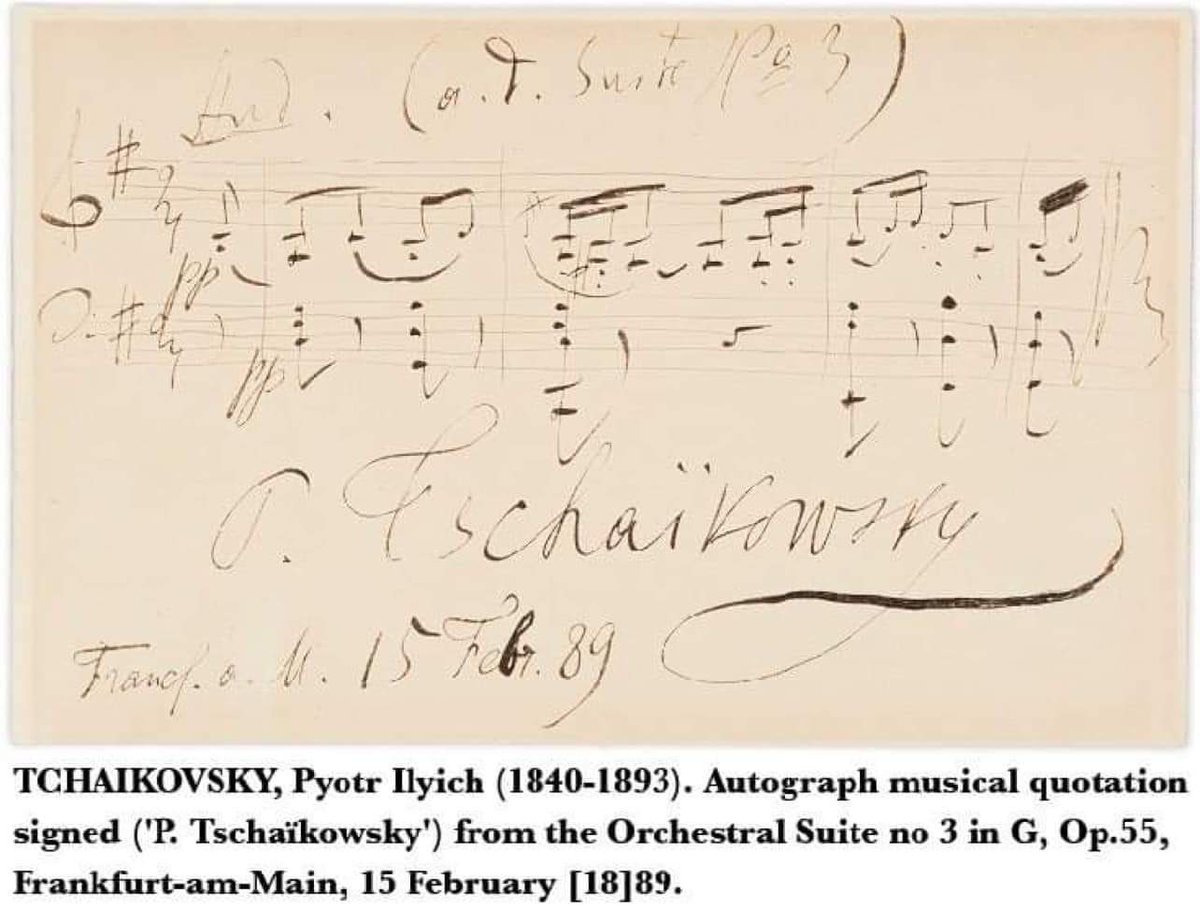 And. (a. d. Suite Nº 3)
pp
pp
P. Tschaïkowsky
Francf. a. M. 15 Febr. 89
TCHAIKOVSKY, Pyotr Ilyich (1840-1893). Autograph musical quotation
signed ('P. Tschaïkowsky') from the Orchestral Suite no 3 in G, Op.55,
Frankfurt-am-Main, 15 February [18]89.